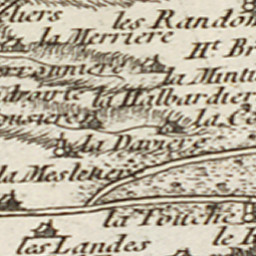 les Randon
la Merriere
Ht Br
la Mintt
la Halbardier
la Daviere
la Co
la Mesleriere
la Touche
les Landes
le B